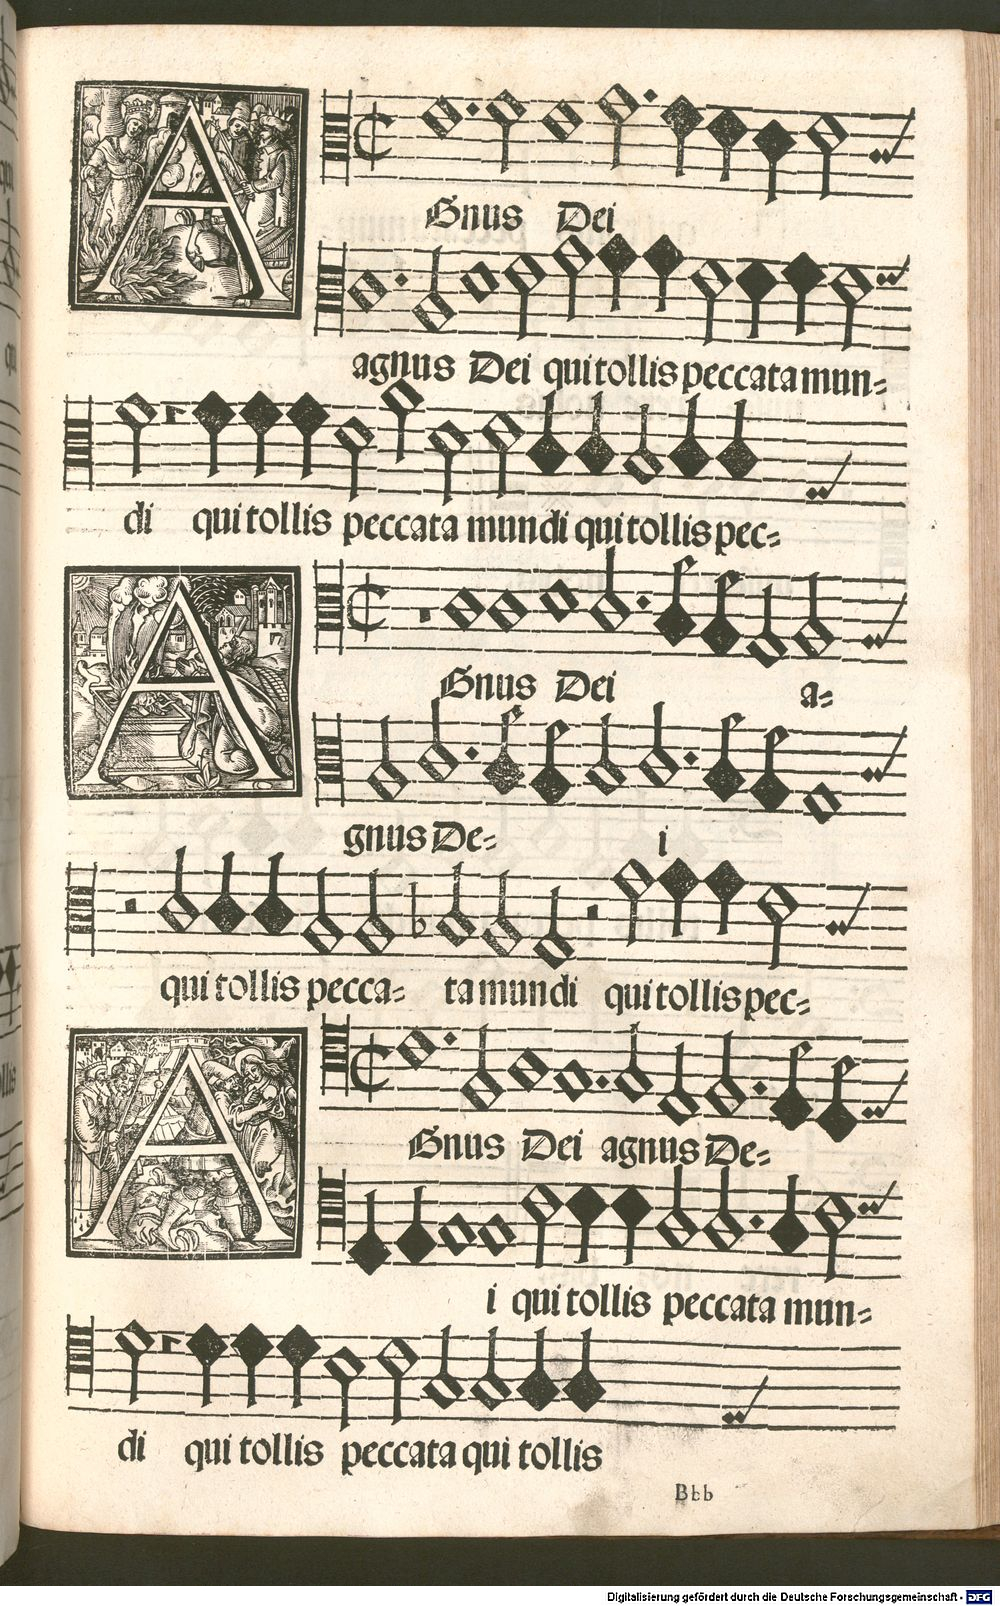 AGnus Dei
agnus Dei qui tollis peccata mun-
di qui tollis peccata mundi qui tollis pec-
AGnus Dei a-
gnus De- i
qui tollis pecca- ta mundi qui tollis pec-
AGnus Dei agnus De-
i qui tollis peccata mun-
di qui tollis peccata qui tollis
Bbb
Digitalisierung gefördert durch die Deutsche Forschungsgemeinschaft - DFG